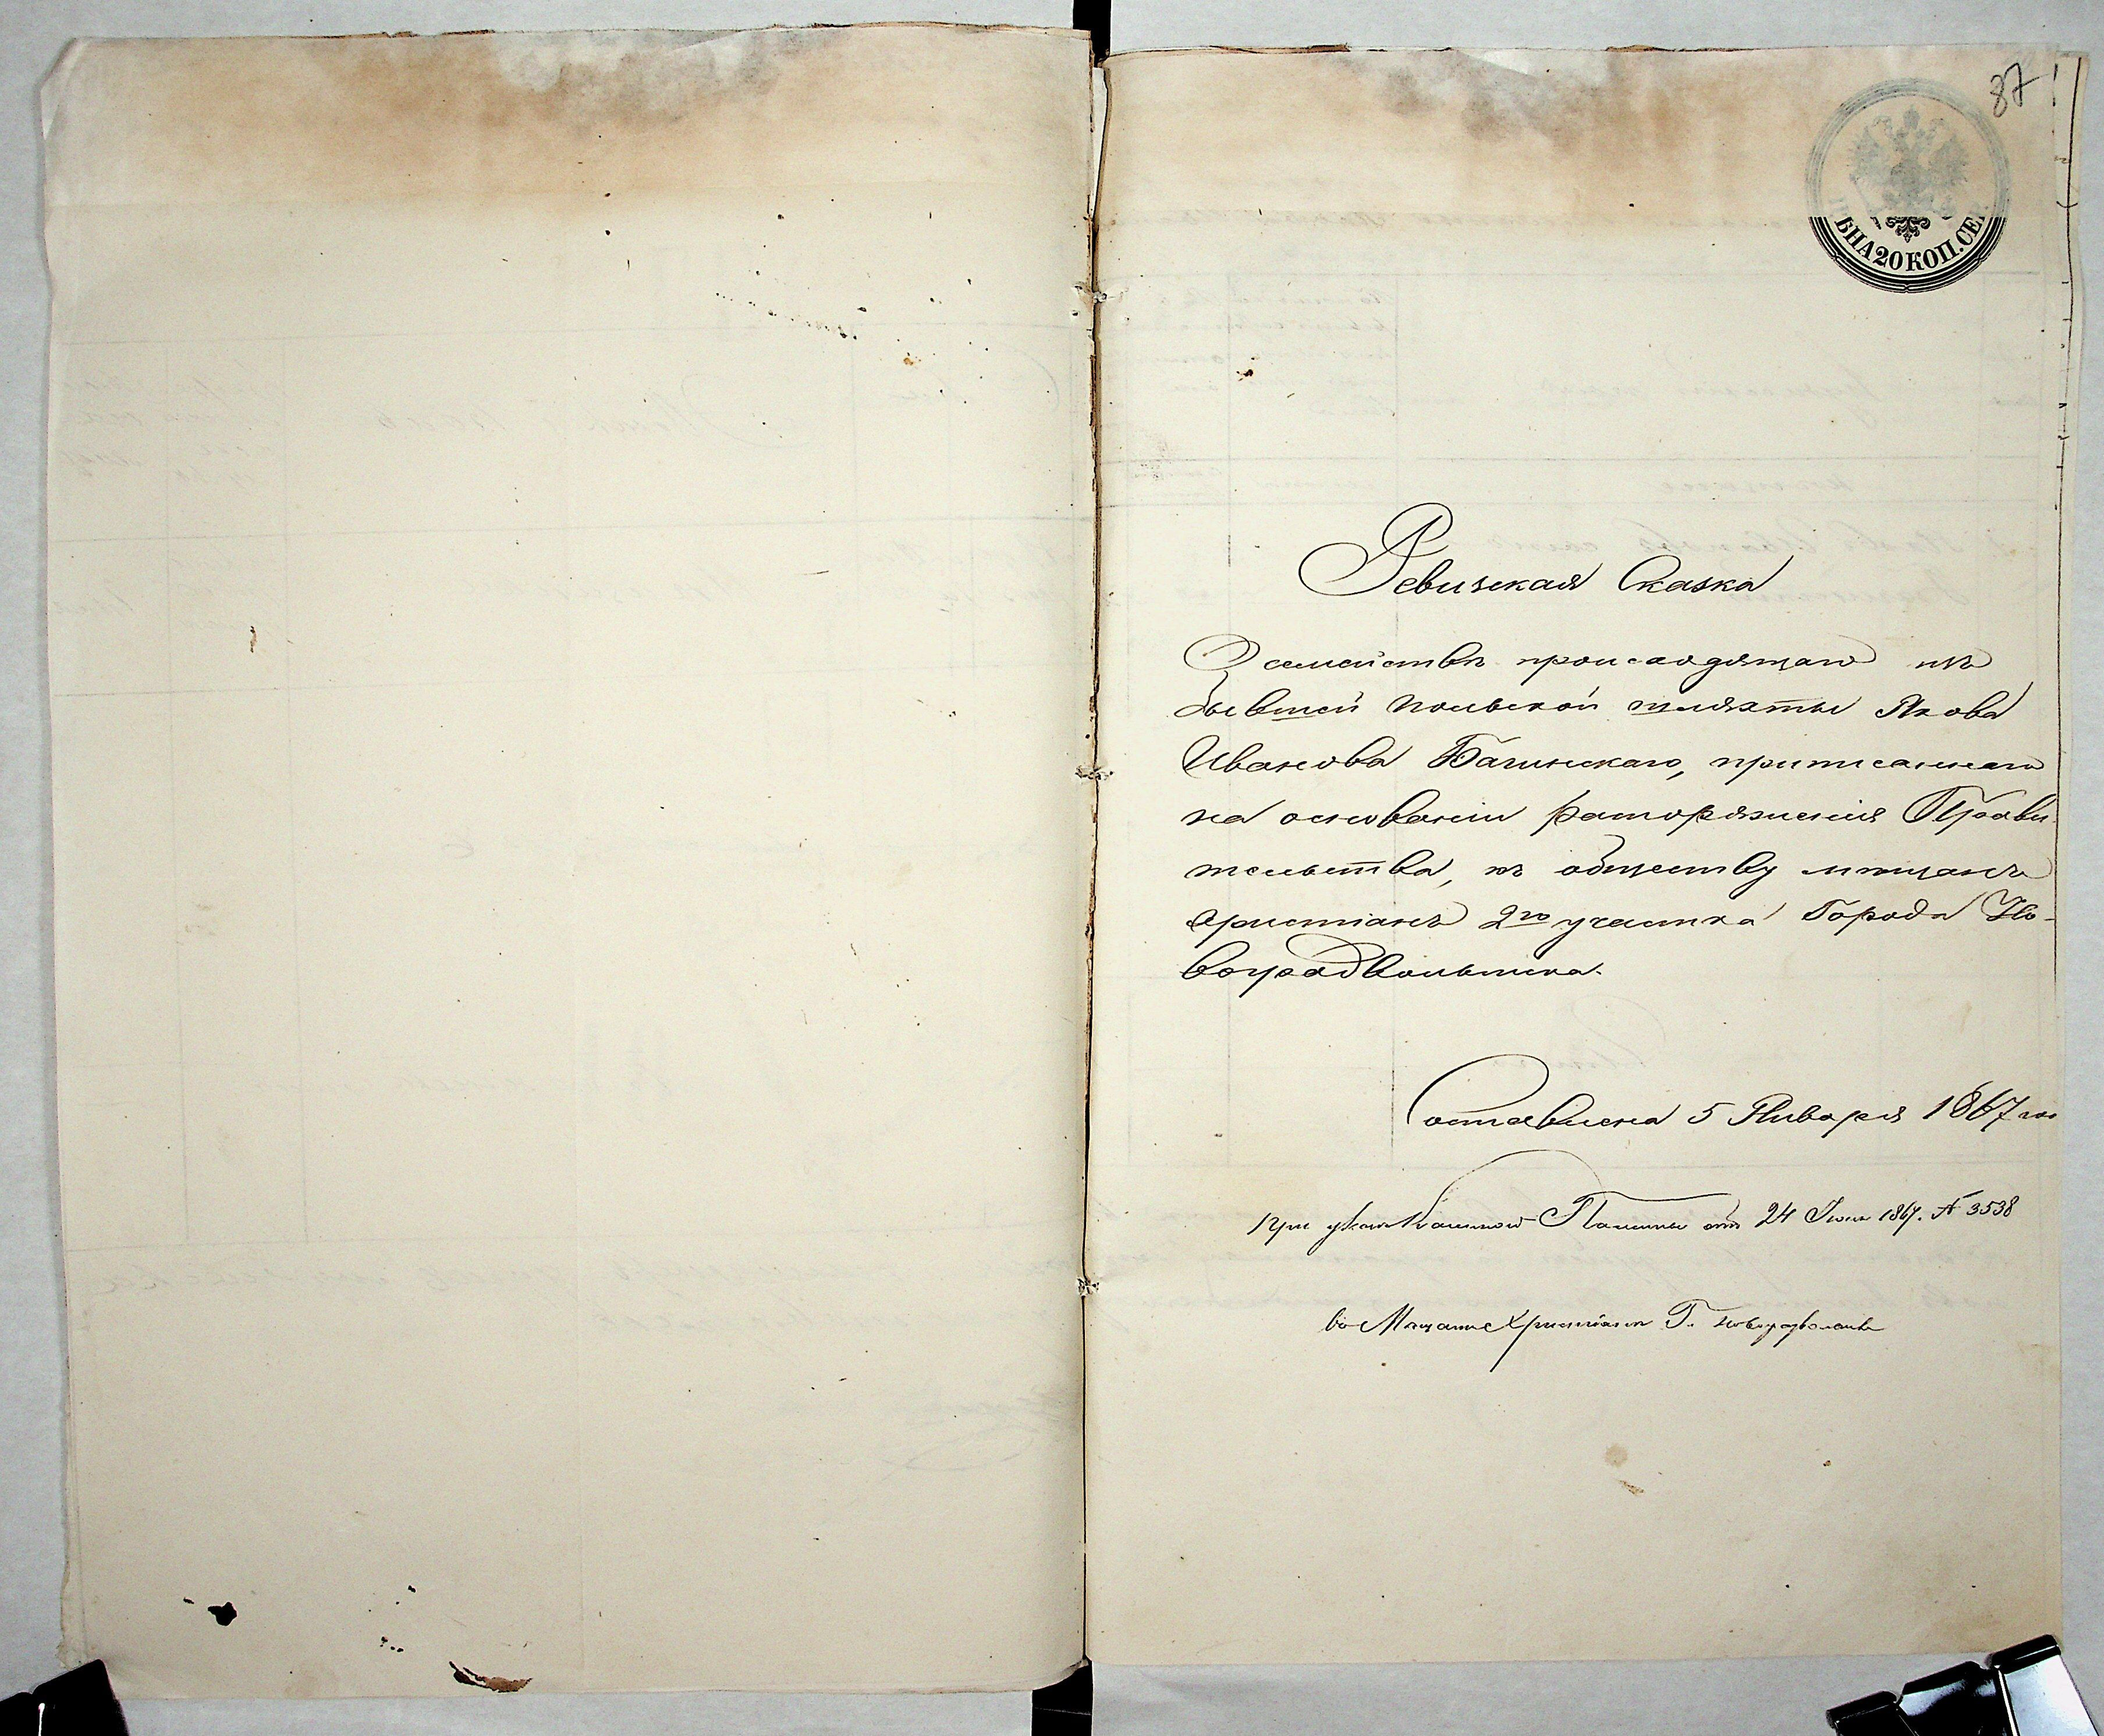 87
ЦѢНА 20 КОП. СЕР.
Ревизская Сказка
О семействѣ происходящаго изъ
бывшей польской шляхты Якова
Иванова Багинскаго, приписаннаго
на основаніи распоряженія Прави-
тельства, къ обществу мѣщанъ
христіанъ 2го участка Города Но-
воградволынска.
Составлена 5 Января 1867 года
При указѣ Казенной Палаты отъ 24 Іюля 1867. № 3538
въ Мѣщане Христіане Г. Новоградволынска